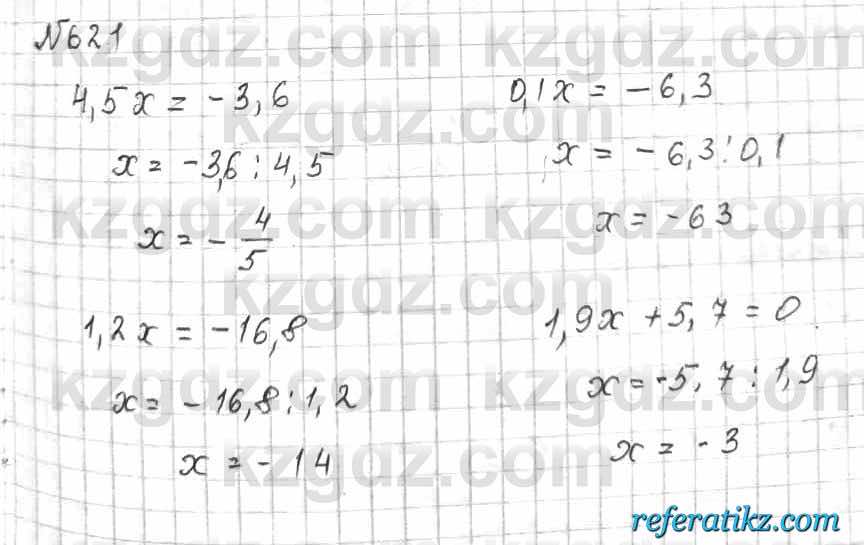 №621
4,5x = -3,6
x = -3,6 : 4,5
x = - 4/5
1,2x = -16,8
x = -16,8 : 1,2
x = -14
0,1x = -6,3
x = -6,3 : 0,1
x = -63
1,9x + 5,7 = 0
x = -5,7 : 1,9
x = -3
kzgdz.com kzgdz.com
kzgdz.com
kzgdz.com kzgdz.com
kzgdz.com
kzgdz.com kzgdz.com
kzgdz.com
referatikz.com